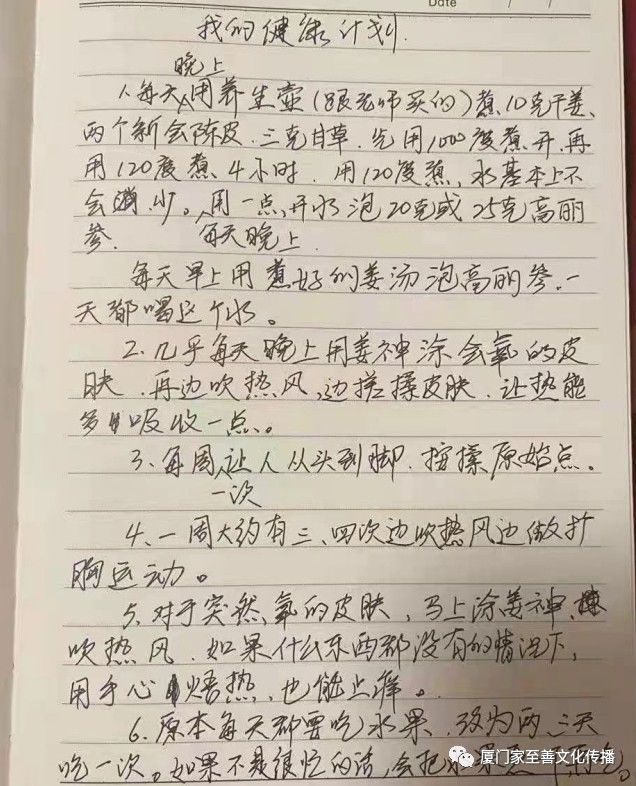 Date / /
我的健康计划
晚上
1、每天用养生壶(跟老师买的)煮10克干姜、
两个新会陈皮、三克甘草、先用1000度煮开、再
用120度煮4小时、用120度煮,水基本上不
会消少。用一点开水泡20克或25克高丽
参. 每天晚上
每天早上用煮好的姜汤泡高丽参、一
天都喝这个水。
2、几乎每天晚上用姜神涂会氧的皮
肤、再边吹热风,边搓揉皮肤、让热能
多吸收一点。
3、每周让人从头到脚、按揉原始点。
一次
4、一周大约有三、四次边吹热风边做扩
胸运动。
5、对于突然氧的皮肤,马上涂姜神、
吹热风、如果什么东西都没有的情况下,
用手心焐热,也能止痒。
6、原本每天都要吃水果、改为两、三天
吃一次。如果不是很忙的话,会把水果
厦门家至善文化传播